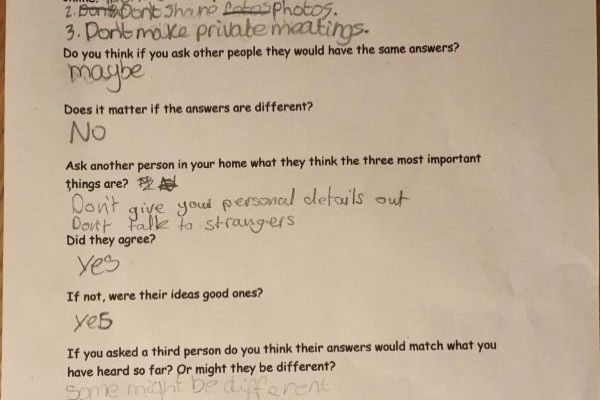 2. Dont Share photos.
3. Dont make private meatings.
Do you think if you ask other people they would have the same answers?
maybe
Does it matter if the answers are different?
No
Ask another person in your home what they think the three most important
things are?
Don't give your personal details out
Don't talk to strangers
Did they agree?
yes
If not, were their ideas good ones?
yes
If you asked a third person do you think their answers would match what you
have heard so far? Or might they be different?
Some might be different